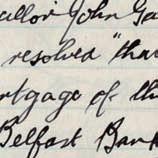 John Ga
resolved "tha
rtgage of th
Belfast Ban